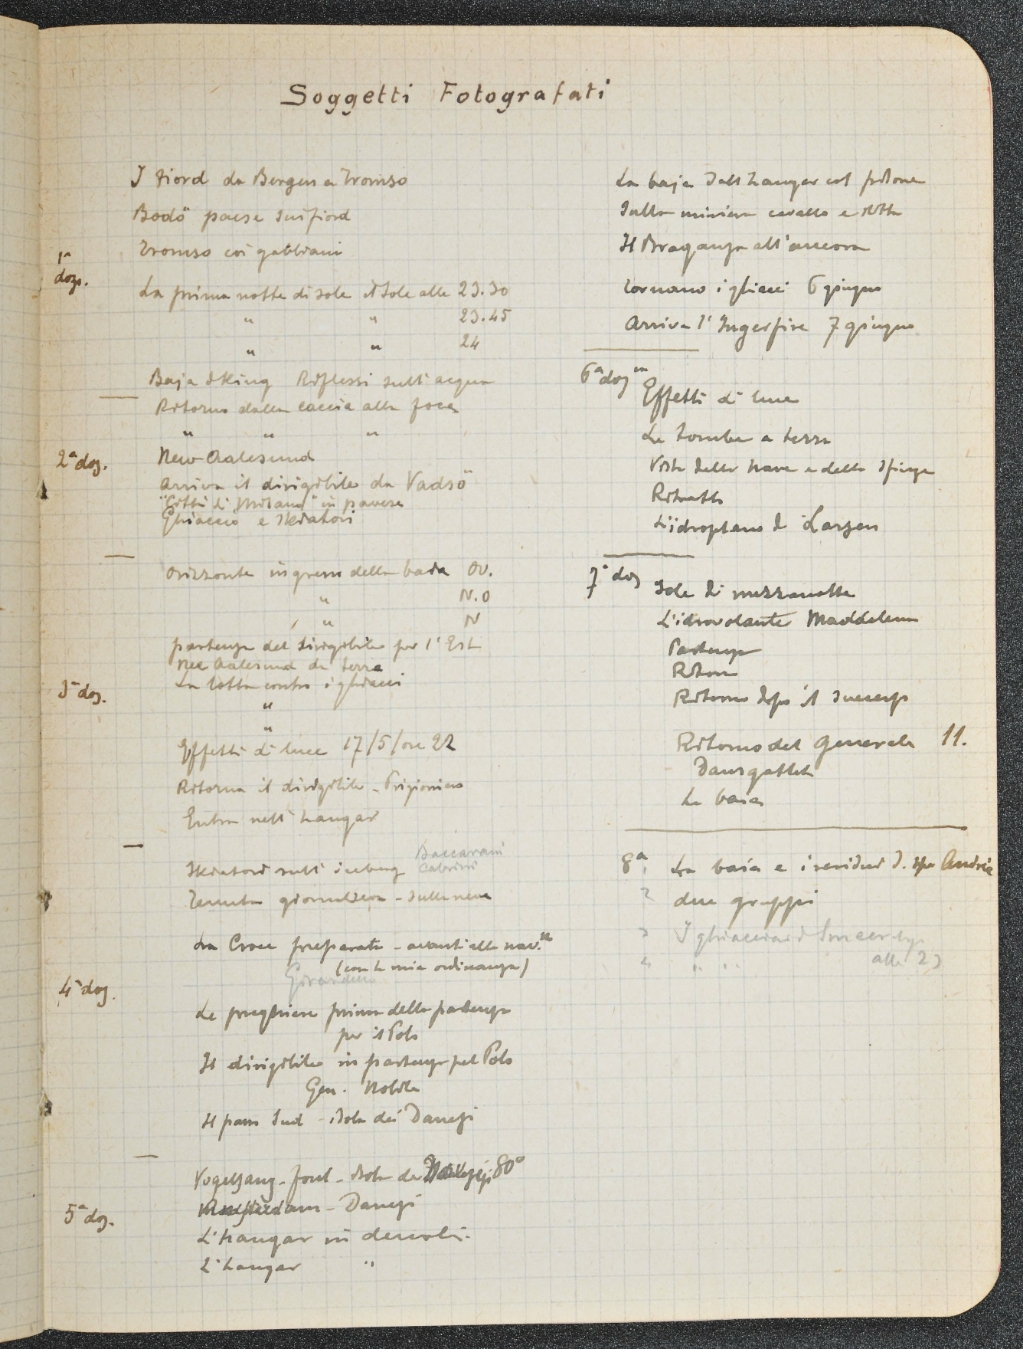 Soggetti Fotografati
I Fiord da Bergen a Tromso
Bodö paese sui fiord
Tromso coi gabbiani
1ª doz.
La prima notte di sole il Sole alle 23.30
" " 23.45
" " 24
Baja King Riflessi sull'acqua
Ritorno dalla caccia alla foca
" " "
2ª doz.
New Aalesund
Arriva il dirigibile da Vadsö
"Città di Milano" in pavese
Ghiaccio e skiatori
Orizzonte ingresso della baia Ov.
" N.O
" N
partenza del dirigibile per l'Est
New Aalesund da terra
3ª doz.
La lotta contro i ghiacci
"
"
Effetti di luce 17/5/ore 22
Ritorna il dirigibile - Prigioniero
Entra nell'hangar
Skiatori sull'iceberg Baccarani
Cabrini
giornaliera - sulla neve
La Croce preparata - avanti alla nave
(con la mia ordinanza)
4ª doz.
Le preghiere prima della partenza
per il Polo
Il dirigibile in partenza pel Polo
Gen. Nobile
Il Sud - isola dei Danesi
Vogelsang - - Isola dei 80°
5ª doz.
Amsterdam - Danesi
L'hangar in
L'hangar "
La baja dall'hangar col
Sulla miniera cavallo e slitta
Il Braganza all'ancora
Tornano i ghiacci 6 giugno
Arriva l' 7 giugno
6ª doz
Effetti di luce
Le tombe a terra
Vista della nave e della
Ritratti
L'idroplano di Larsen
7ª doz
Sole di mezzanotte
L'idrovolante Maddalena
Partenza
Ritorno
Ritorno dopo il successo
Ritorno del Generale 11.
Dansgattet
La baia
8ª 1 La baia e i residui d. Andrée
2 due gruppi
3 I ghiacciai di
4 " " alle 23